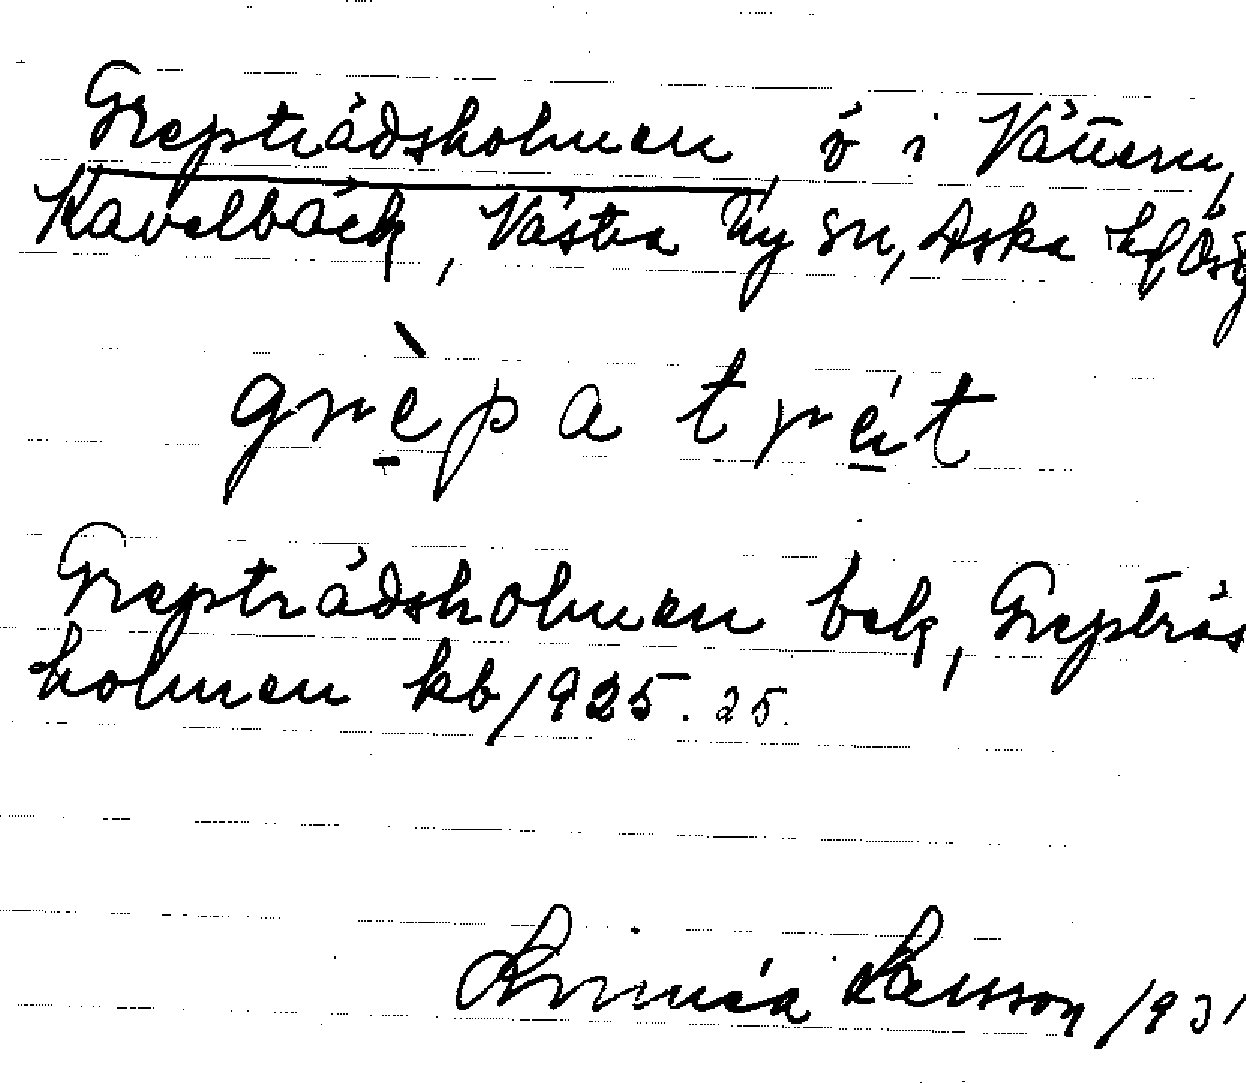 Grepträdsholmen ö i Vättern,
Kavelbäck, Västra Ny sn, Aska hd, Ög
grèpatrét
Grepträdsholmen bek, Grepträs
holmen kb 1925. 25.
Linnéa Larsson 1931